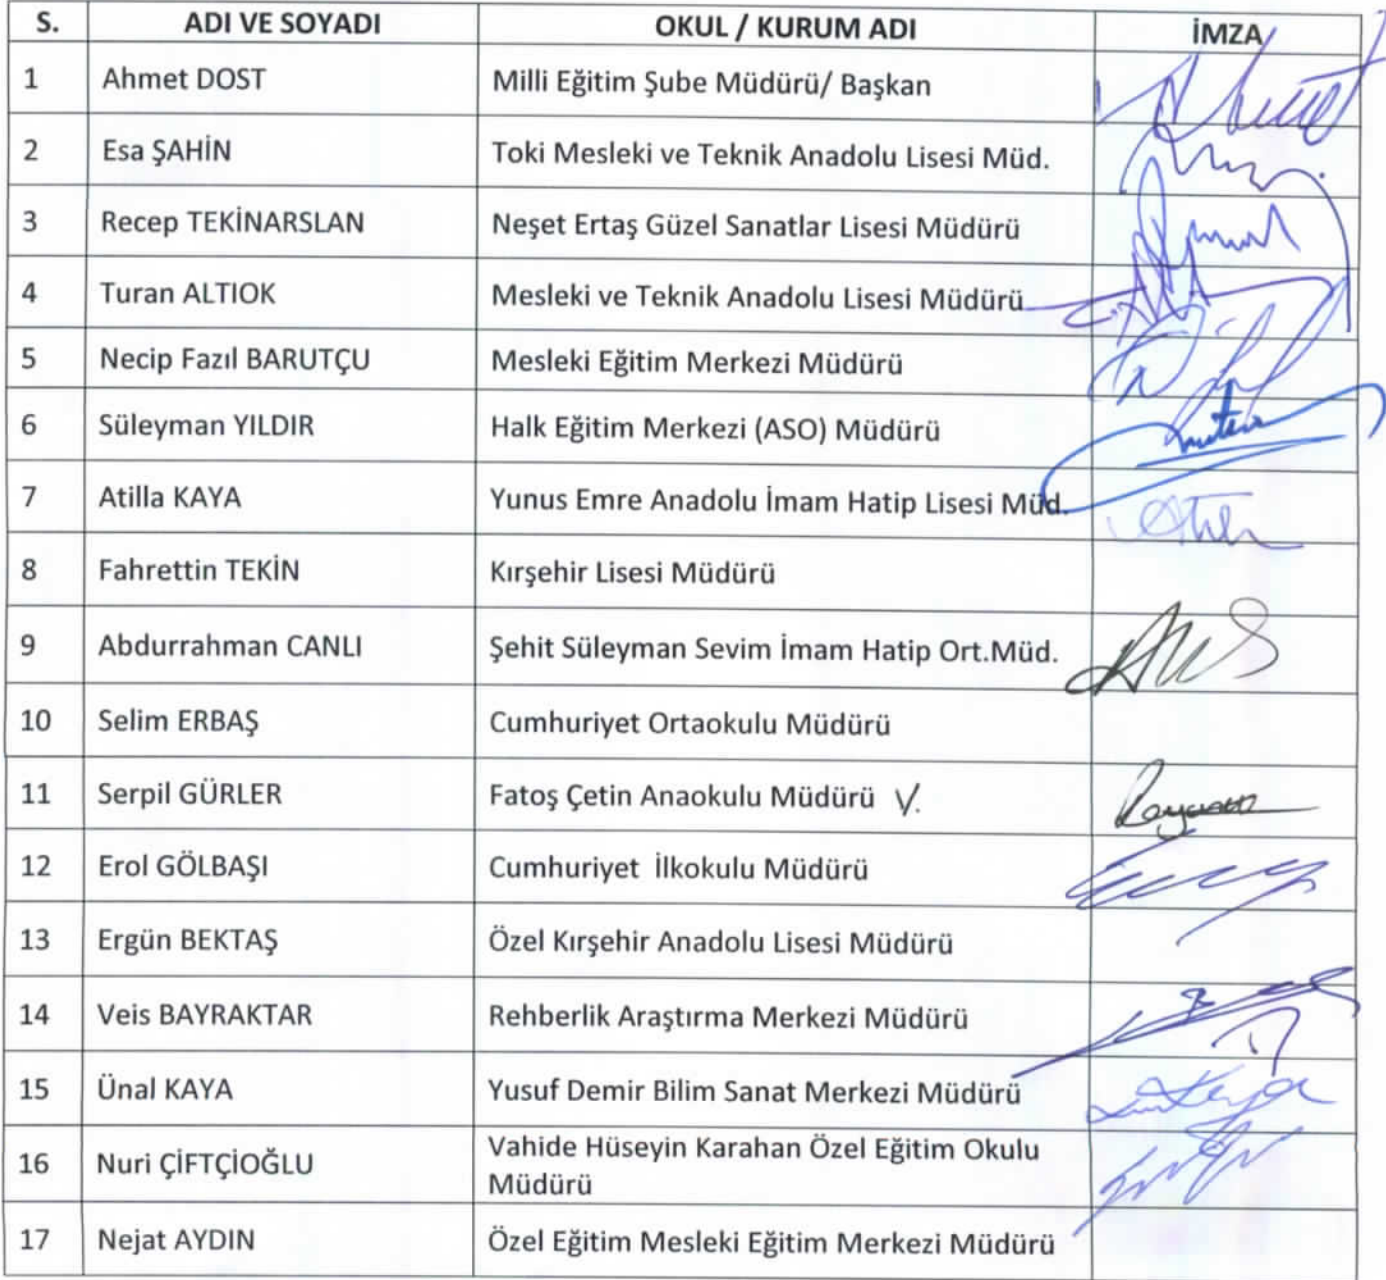 S. ADI VE SOYADI OKUL / KURUM ADI İMZA
1 Ahmet DOST Milli Eğitim Şube Müdürü/ Başkan Ahmet
2 Esa ŞAHİN Toki Mesleki ve Teknik Anadolu Lisesi Müd.
3 Recep TEKİNARSLAN Neşet Ertaş Güzel Sanatlar Lisesi Müdürü
4 Turan ALTIOK Mesleki ve Teknik Anadolu Lisesi Müdürü
5 Necip Fazıl BARUTÇU Mesleki Eğitim Merkezi Müdürü
6 Süleyman YILDIR Halk Eğitim Merkezi (ASO) Müdürü
7 Atilla KAYA Yunus Emre Anadolu İmam Hatip Lisesi Müd.
8 Fahrettin TEKİN Kırşehir Lisesi Müdürü
9 Abdurrahman CANLI Şehit Süleyman Sevim İmam Hatip Ort.Müd.
10 Selim ERBAŞ Cumhuriyet Ortaokulu Müdürü
11 Serpil GÜRLER Fatoş Çetin Anaokulu Müdürü V.
12 Erol GÖLBAŞI Cumhuriyet İlkokulu Müdürü
13 Ergün BEKTAŞ Özel Kırşehir Anadolu Lisesi Müdürü
14 Veis BAYRAKTAR Rehberlik Araştırma Merkezi Müdürü
15 Ünal KAYA Yusuf Demir Bilim Sanat Merkezi Müdürü
16 Nuri ÇİFTÇİOĞLU Vahide Hüseyin Karahan Özel Eğitim Okulu
Müdürü
17 Nejat AYDIN Özel Eğitim Mesleki Eğitim Merkezi Müdürü